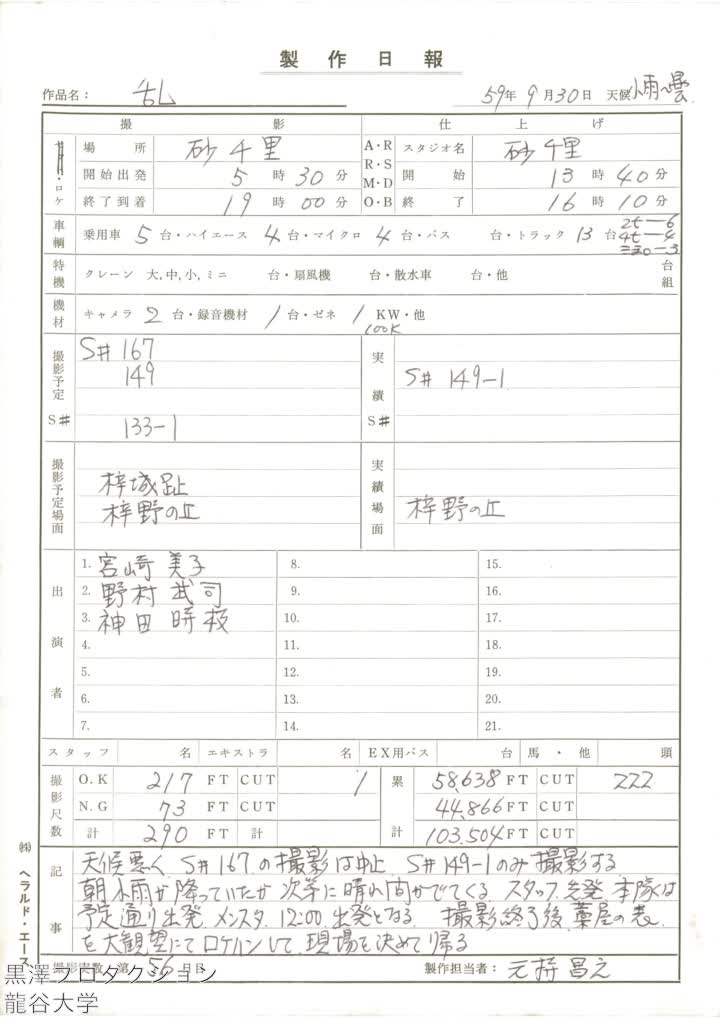 製作日報
作品名： 乱 59年 9月30日 天候 小雨〜曇
撮影 仕上げ
・ロケ 場所 砂千里 A・R R・S M・D O・B スタジオ名 砂千里
開始出発 5時30分 開始 13時40分
終了到着 19時00分 終了 16時10分
車輛 乗用車 5台・ハイエース 4台・マイクロ 4台・バス 台・トラック 13台 2t－6 4t－4
特機 クレーン 大,中,小,ミニ 台・扇風機 台・散水車 台・他 台組
機材 キャメラ 2台・録音機材 1台・ゼネ 1 KW・他
100K
撮影予定 S# S#167 実績 S#
149 S# 149-1
133-1
撮影予定場面 梓城趾 実績場面
梓野の丘 梓野の丘
出演者
1. 宮崎美子 8. 15.
2. 野村武司 9. 16.
3. 神田時枝 10. 17.
4. 11. 18.
5. 12. 19.
6. 13. 20.
7. 14. 21.
スタッフ 名 エキストラ 名 EX用バス 台 馬・他 頭
撮影尺数 O.K 217 FT CUT 1 累計 58,638 FT CUT 222
N.G 73 FT CUT 44,866 FT CUT
計 290 FT 計 103,504 FT CUT
記事 天候悪く S#167の撮影は中止 S#149-1のみ撮影する
朝小雨が降っていたが次第に晴れ間がでてくる スタッフ先発 本隊は
予定通り出発 メンスタ 12:00 出発となる 撮影終了後 藁屋の表
を大観望にてロケハンして 現場を決めて帰る
撮影実数 第 56日目 製作担当者： 元持昌之
㈱ ヘラルド・エース
黒澤プロダクション
龍谷大学